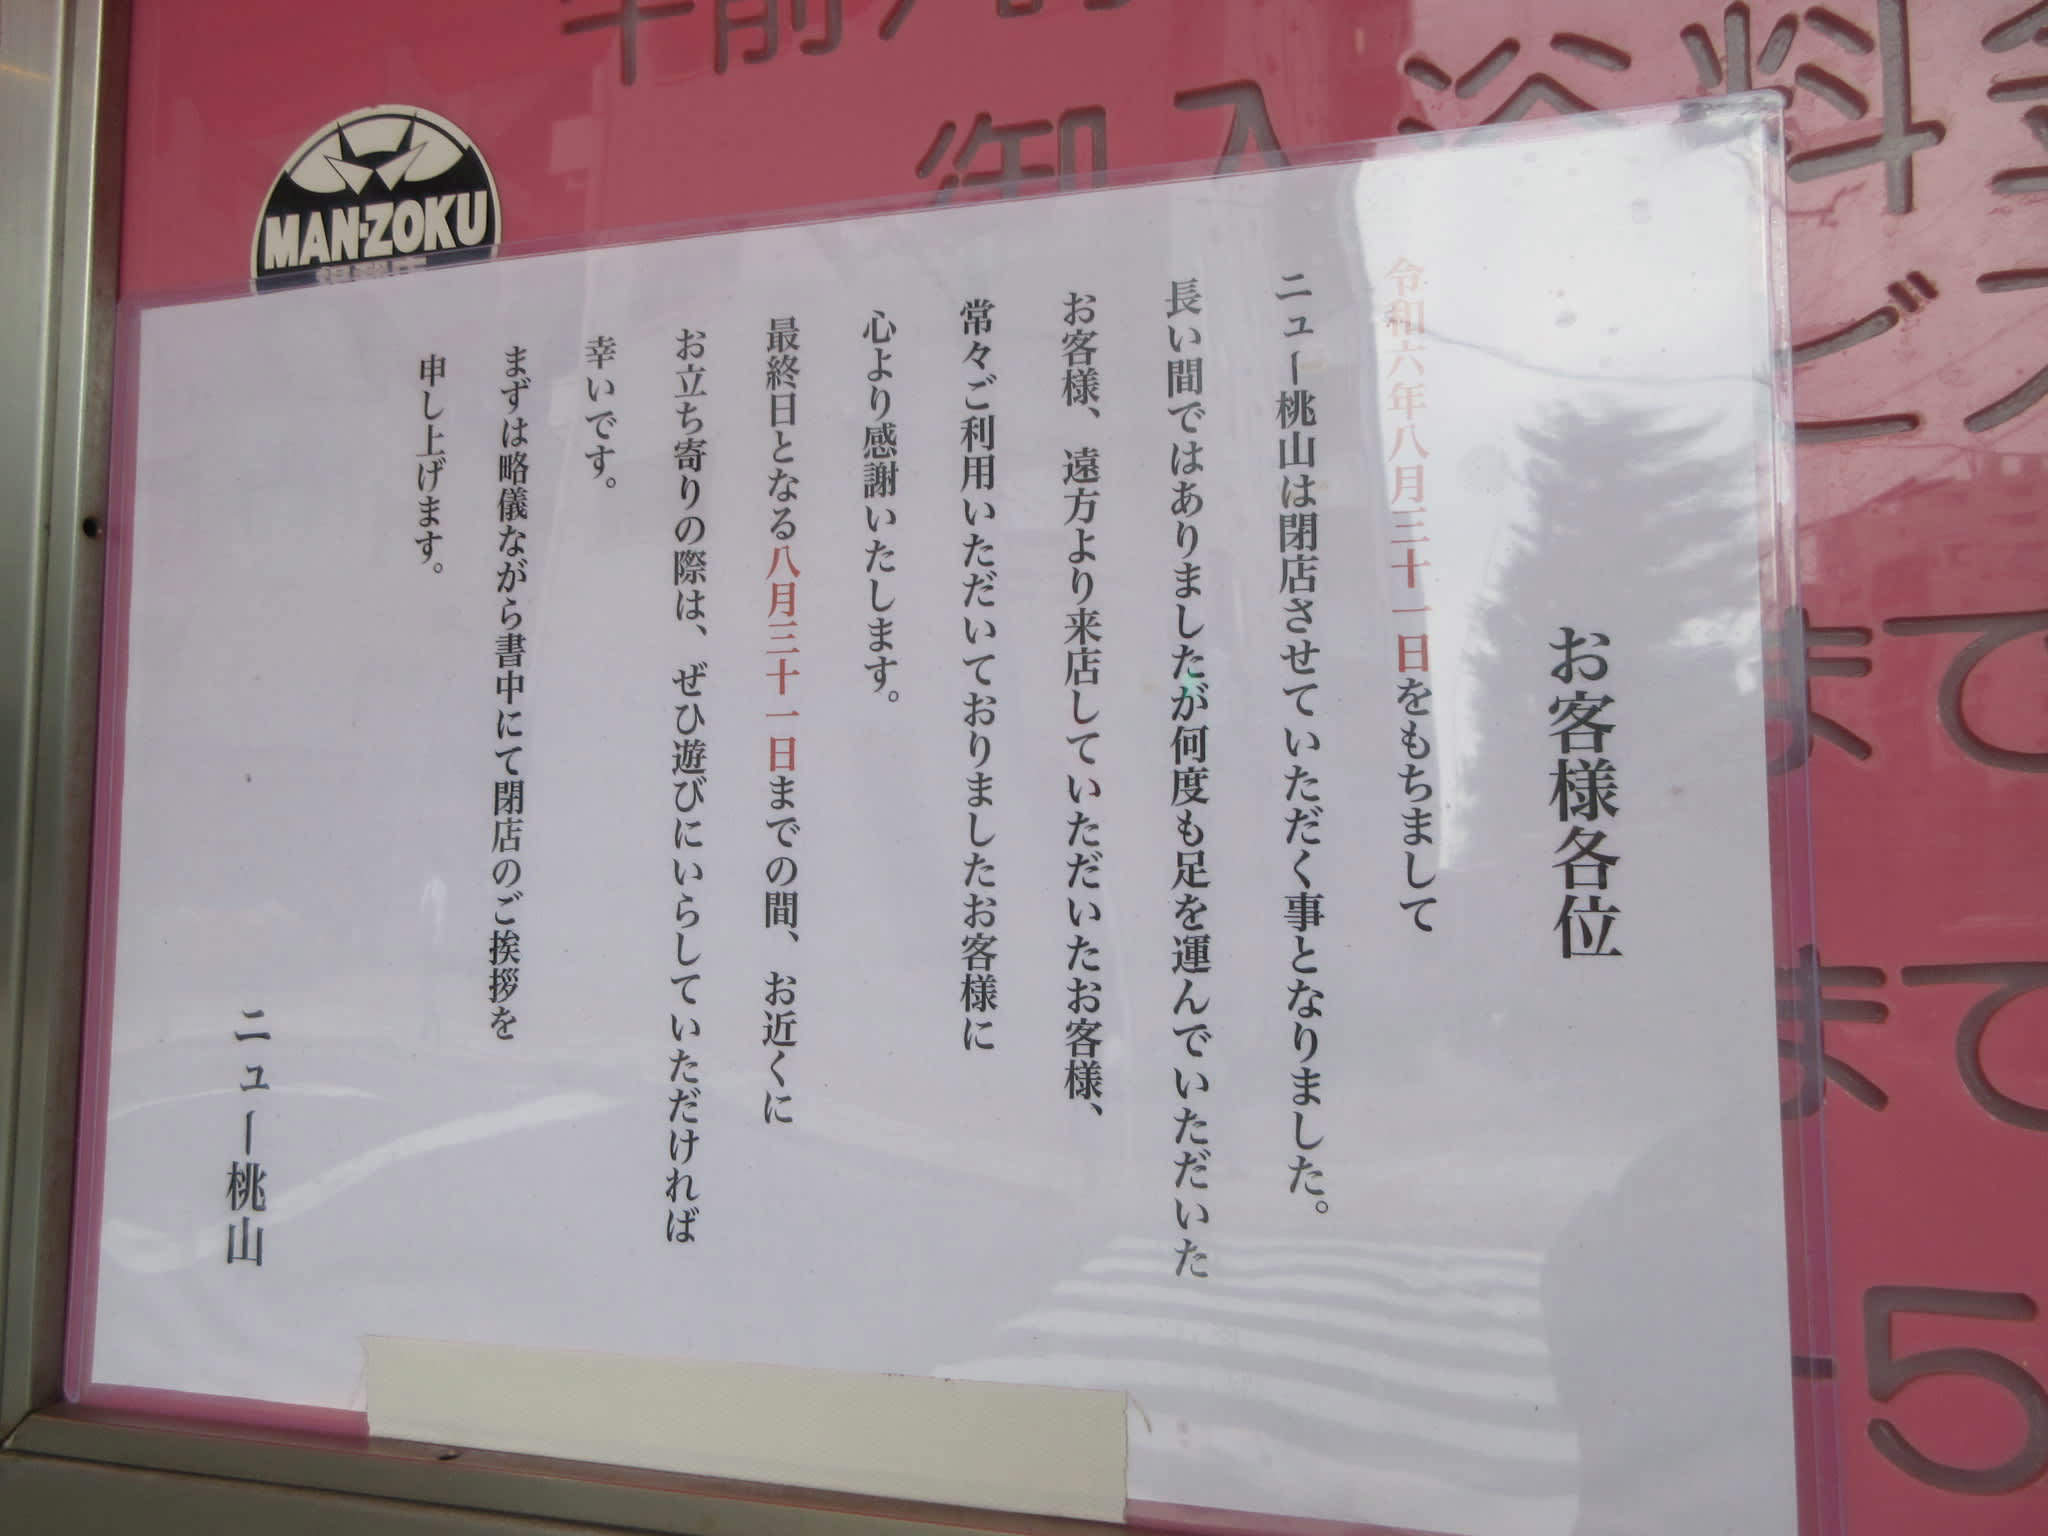 お客様各位
令和六年八月三十一日をもちまして
ニュー桃山は閉店させていただく事となりました。
長い間ではありましたが何度も足を運んでいただいた
お客様、遠方より来店していただいたお客様、
常々ご利用いただいておりましたお客様に
心より感謝いたします。
最終日となる八月三十一日までの間、お近くに
お立ち寄りの際は、ぜひ遊びにいらしていただければ
幸いです。
まずは略儀ながら書中にて閉店のご挨拶を
申し上げます。
ニュー桃山
MAN-ZOKU
午前
御入浴料
まで
まで
5